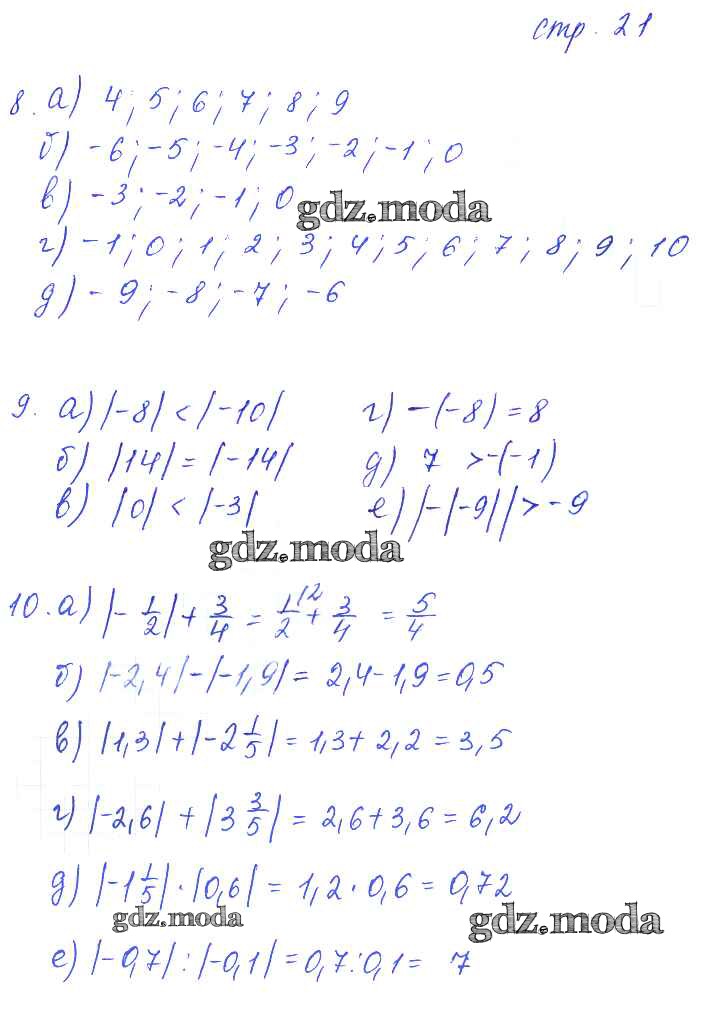 стр. 21
8. а) 4; 5; 6; 7; 8; 9
б) -6; -5; -4; -3; -2; -1; 0
в) -3; -2; -1; 0
gdz.moda
г) -1; 0; 1; 2; 3; 4; 5; 6; 7; 8; 9; 10
д) -9; -8; -7; -6
9. а) |-8| < |-10| г) -(-8) = 8
б) |14| = |-14| д) 7 > -(-1)
в) |0| < |-3| е) |-|-9|| > -9
gdz.moda
10. а) |-1/2| + 3/4 = 1/2 \2 + 3/4 = 5/4
б) |-2,4| - |-1,9| = 2,4 - 1,9 = 0,5
в) |1,3| + |-2 1/5| = 1,3 + 2,2 = 3,5
г) |-2,6| + |3 3/5| = 2,6 + 3,6 = 6,2
д) |-1 1/5| · |0,6| = 1,2 · 0,6 = 0,72
gdz.moda gdz.moda
е) |-0,7| : |-0,1| = 0,7 : 0,1 = 7